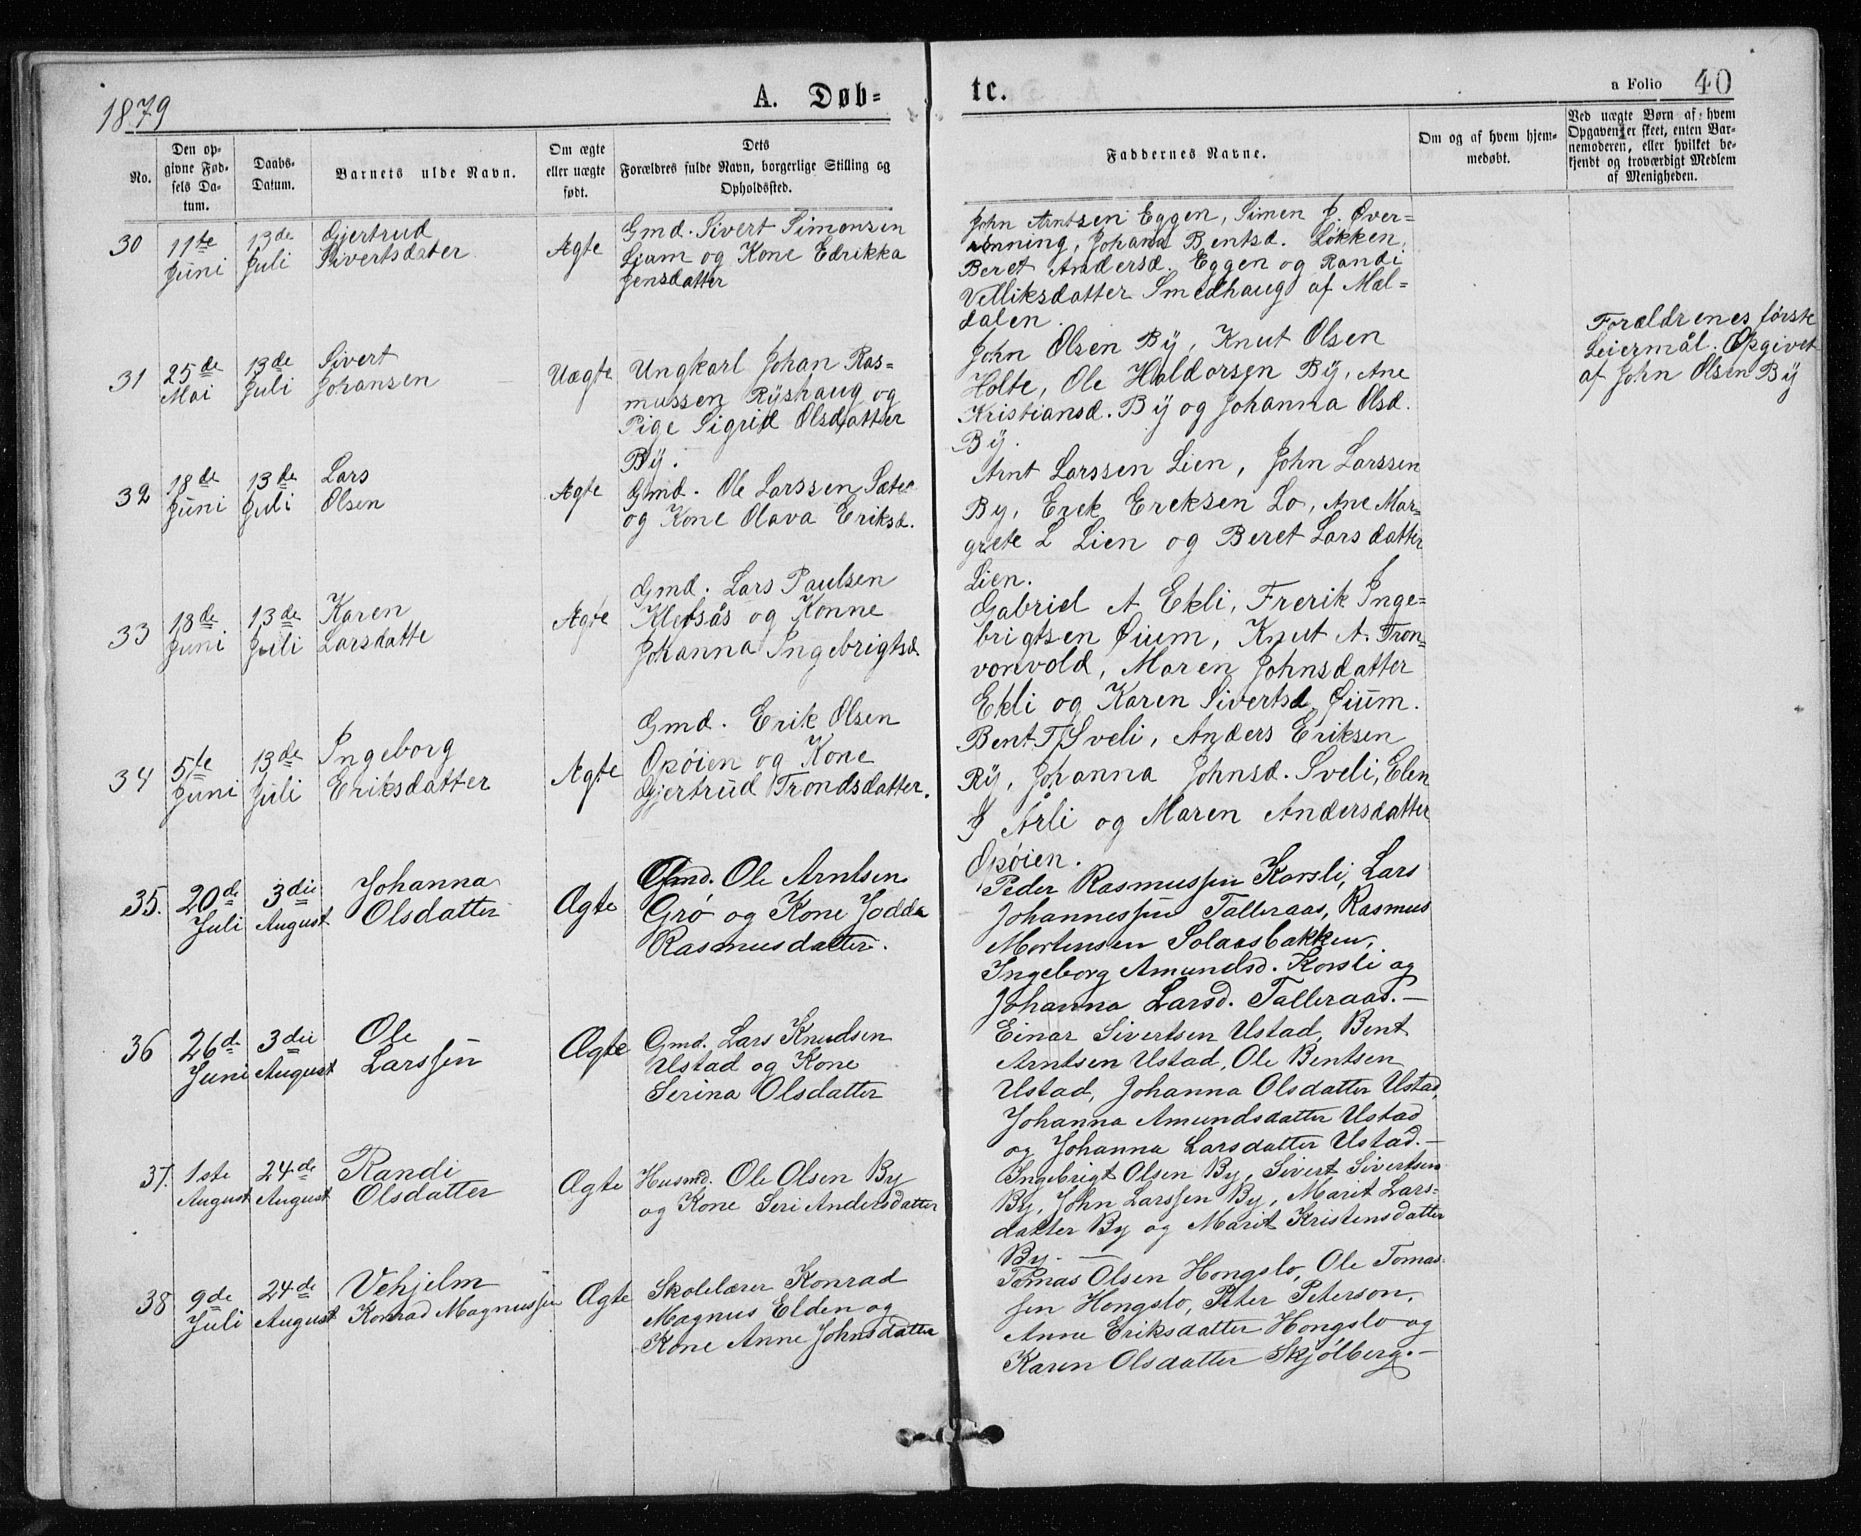 1879
A. Døb-
te.
a Folio 40
No.
Den op-
givne Fød-
sels Da-
tum.
Daabs-
Datum.
Barnets ulde Navn.
Om ægte
eller uægte
født.
Dets
Forældres fulde Navn, borgerlige Stilling og
Opholdssted.
Faddernes Navne.
Om og af hvem hjem-
medøbt.
Ved uægte Børn af hvem
Opgaven er skeet, enten Bar-
nemoderen, eller hvilket be-
kjendt og troværdigt Medlem
af Menigheden.
30
11te
Juni
13de
Juli
Gjertrud
Sivertsdater
Ægte
Gmd. Sivert Simonsen
Øium og Kone Edrikka
Jensdatter
John Arntsen Eggen, Simen J. Øver-
rønning, Johana Bentsd. Løkken,
Beret Andersd. Eggen og Randi
Velliksdatter Smedhaug af Mæl-
dalen.
31
25de
Mai
13de
Juli
Sivert
Johansen
Uægte
Ungkarl Johan Ras-
mussen Ryshaug og
Pige Sigrid Olsdatter
By.
John Olsen By, Knut Olsen
Holte, Ole Haldorsen By, Ane
Kristiansd. By og Johanna Olsd.
By.
Forældrenes første
Leiermål. Opgivet
af John Olsen By
32
18de
Juni
13de
Juli
Lars
Olsen
Ægte
Gmd. Ole Larssen Sæter
og Kone Olava Eriksd.
Arnt Larssen Lien, John Larssen
By, Erek Ereksen Lo, Ane Mar-
grete L Lien og Beret Larsdatter
Lien.
33
18de
Juni
13de
Juli
Karen
Larsdatte
Ægte
Gmd. Lars Paulsen
Klevsås og Konne
Johanna Ingebrigtsd.
Gabriel A Ekli, Frerik Inge-
brigtsen Øium, Knut A. Tron-
vonvold, Maren Johnsdatter
Ekli og Karen Sivertsd Øium.
34
5te
Juni
13de
Juli
Ingeborg
Eriksdatter
Ægte
Gmd. Erik Olsen
Opøien og Kone
Gjertrud Trondsdatter.
Bent T Sveli, Anders Eriksen
Ry, Johanna Johnsd. Sveli, Elen
J Årli og Maren Andersdatter
Opøien.
35.
20de
Juli
3die
August
Johanna
Olsdatter
Ægte
Gmd. Ole Arntsen
Grø og Kone Jodda
Rasmusdatter.
Peder Rasmussen Korsli, Lars
Johannessen Talleraas, Rasmus
Mortensen Solaasbakken,
Ingeborg Amundsd. Korsli og
Johanna Larsd. Talleraas.—
36
26de
Juni
3die
August
Ole
Larssen
Ægte
Gmd. Lars Knudsen
Ustad og Kone
Serina Olsdatter
Einar Sivertsen Ustad, Bent
Arntsen Ustad, Ole Bentsen
Ustad, Johanna Olsdatter Ustad,
Johanna Amundsdatter Ustad
og Johanna Larsdatter Ustad.—
37.
1ste
August
24de
August
Randi
Olsdatter
Ægte
Husmd. Ole Olsen By
og Kone Seri Andersdatter
Ingebrigt Olsen By, Sivert Sivertsen
By, John Larssen By, Marit Lars-
datter By og Marit Kristensdatter
By.—
38
9de
Juli
24de
August
Vehjelm
Konrad Magnussen
Ægte
Skolelærer Konrad
Magnus Elden og
Kone Anne Johnsdatter
Tomas Olsen Hongslo, Ole Tomas-
sen Hongslo, Peter Peterson,
Anne Eriksdatter Hongslo og
Karen Olsdatter Skjølberg.—